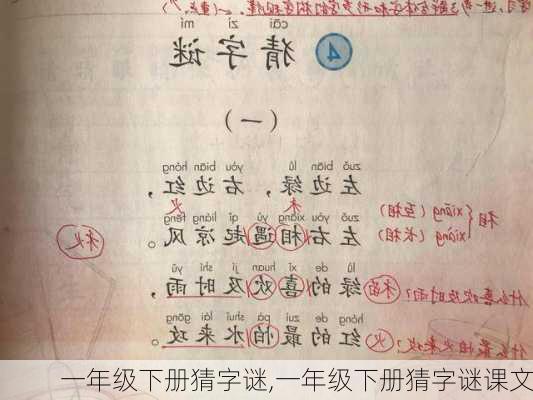 4 猜字谜
cāi zì mí
（一）
zuǒ biān lǜ yòu biān hóng
左边绿，右边红，
zuǒ yòu xiāng yù qǐ liáng fēng
左右相遇起凉风。
lǜ de xǐ huan jí shí yǔ
绿的喜欢及时雨，
hóng de zuì pà shuǐ lái gōng
红的最怕水来攻。
木 火
禾火
相
xiāng（互相）
xiàng（长相）
禾苗
什么喜欢及时雨？
火
什么最怕水来攻？
一年级下册猜字谜,一年级下册猜字谜课文